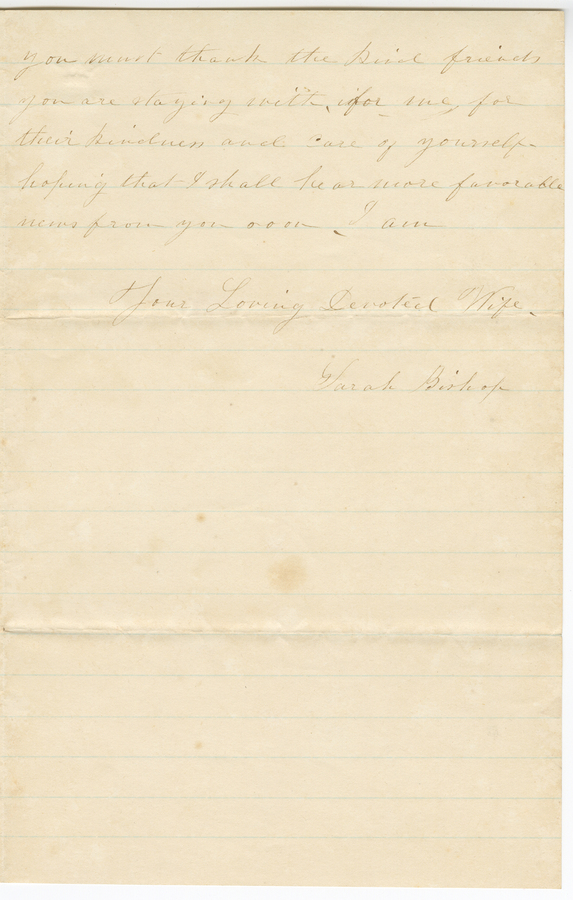 you must thank the kind friends
you are staying with, for me, for
their kindness and care of yourself-
hoping that I shall hear more favorable
news from you soon, I am
Your Loving Devoted Wife.
Sarah Bishop